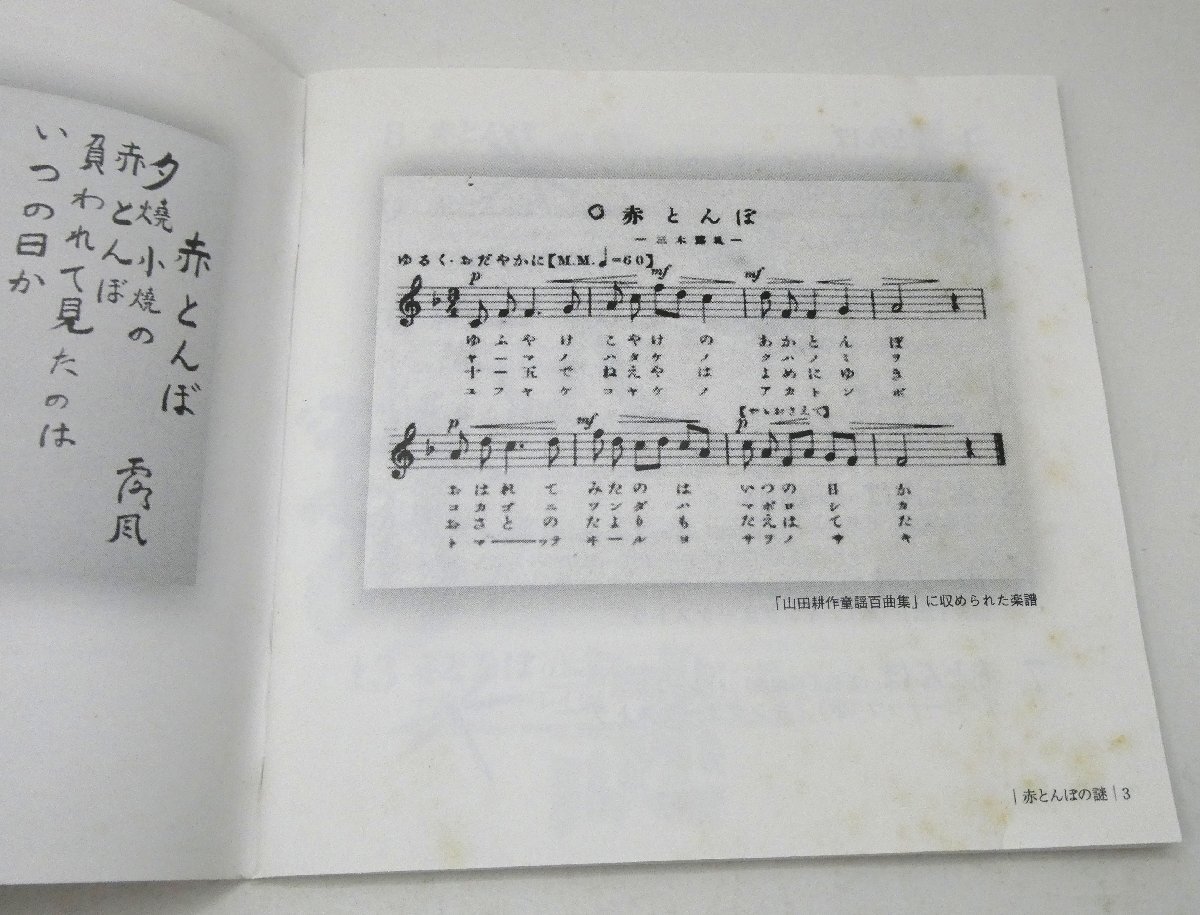 赤とんぼ
露風
夕燒小燒の
赤とんぼ
負われて見たのは
いつの日か
○赤とんぼ
—三木露風—
ゆるく・おだやかに【M.M.♩=60】
p mf mf
ゆふやけ こやけの あかとんぼ
ヤーマノ ハタケノ クハノミヲ
十一五で ねえやは よめにゆき
ユフヤケ コヤケノ アカトンボ
【やゝおさえて】
p mf p
おはれて みたのは いつの日か
コカゴニ ツンダハ マボロシカ
おさとの たよりも たえはてた
トマーッテ ヰールヨ サヲノサキ
「山田耕作童謡百曲集」に収められた楽譜
|赤とんぼの謎|3